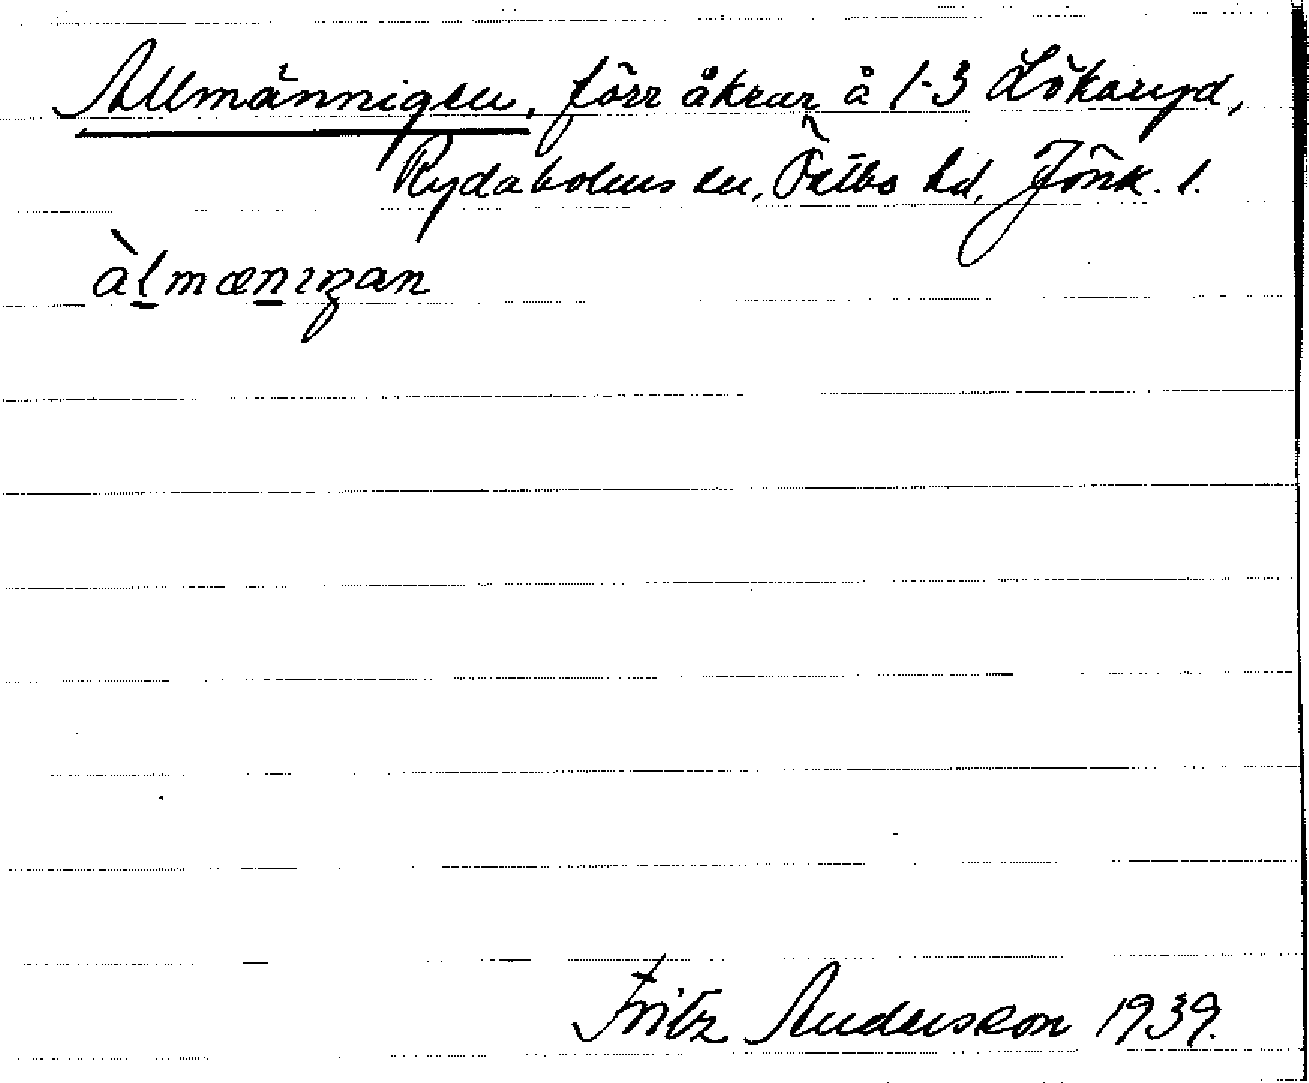 Allmännigen, förr åkrar å 1-3 Lökaryd,
Rydaholms sn, Östbo hd, Jönk. l.
àlmænıgan
Fritz Andersson 1939.